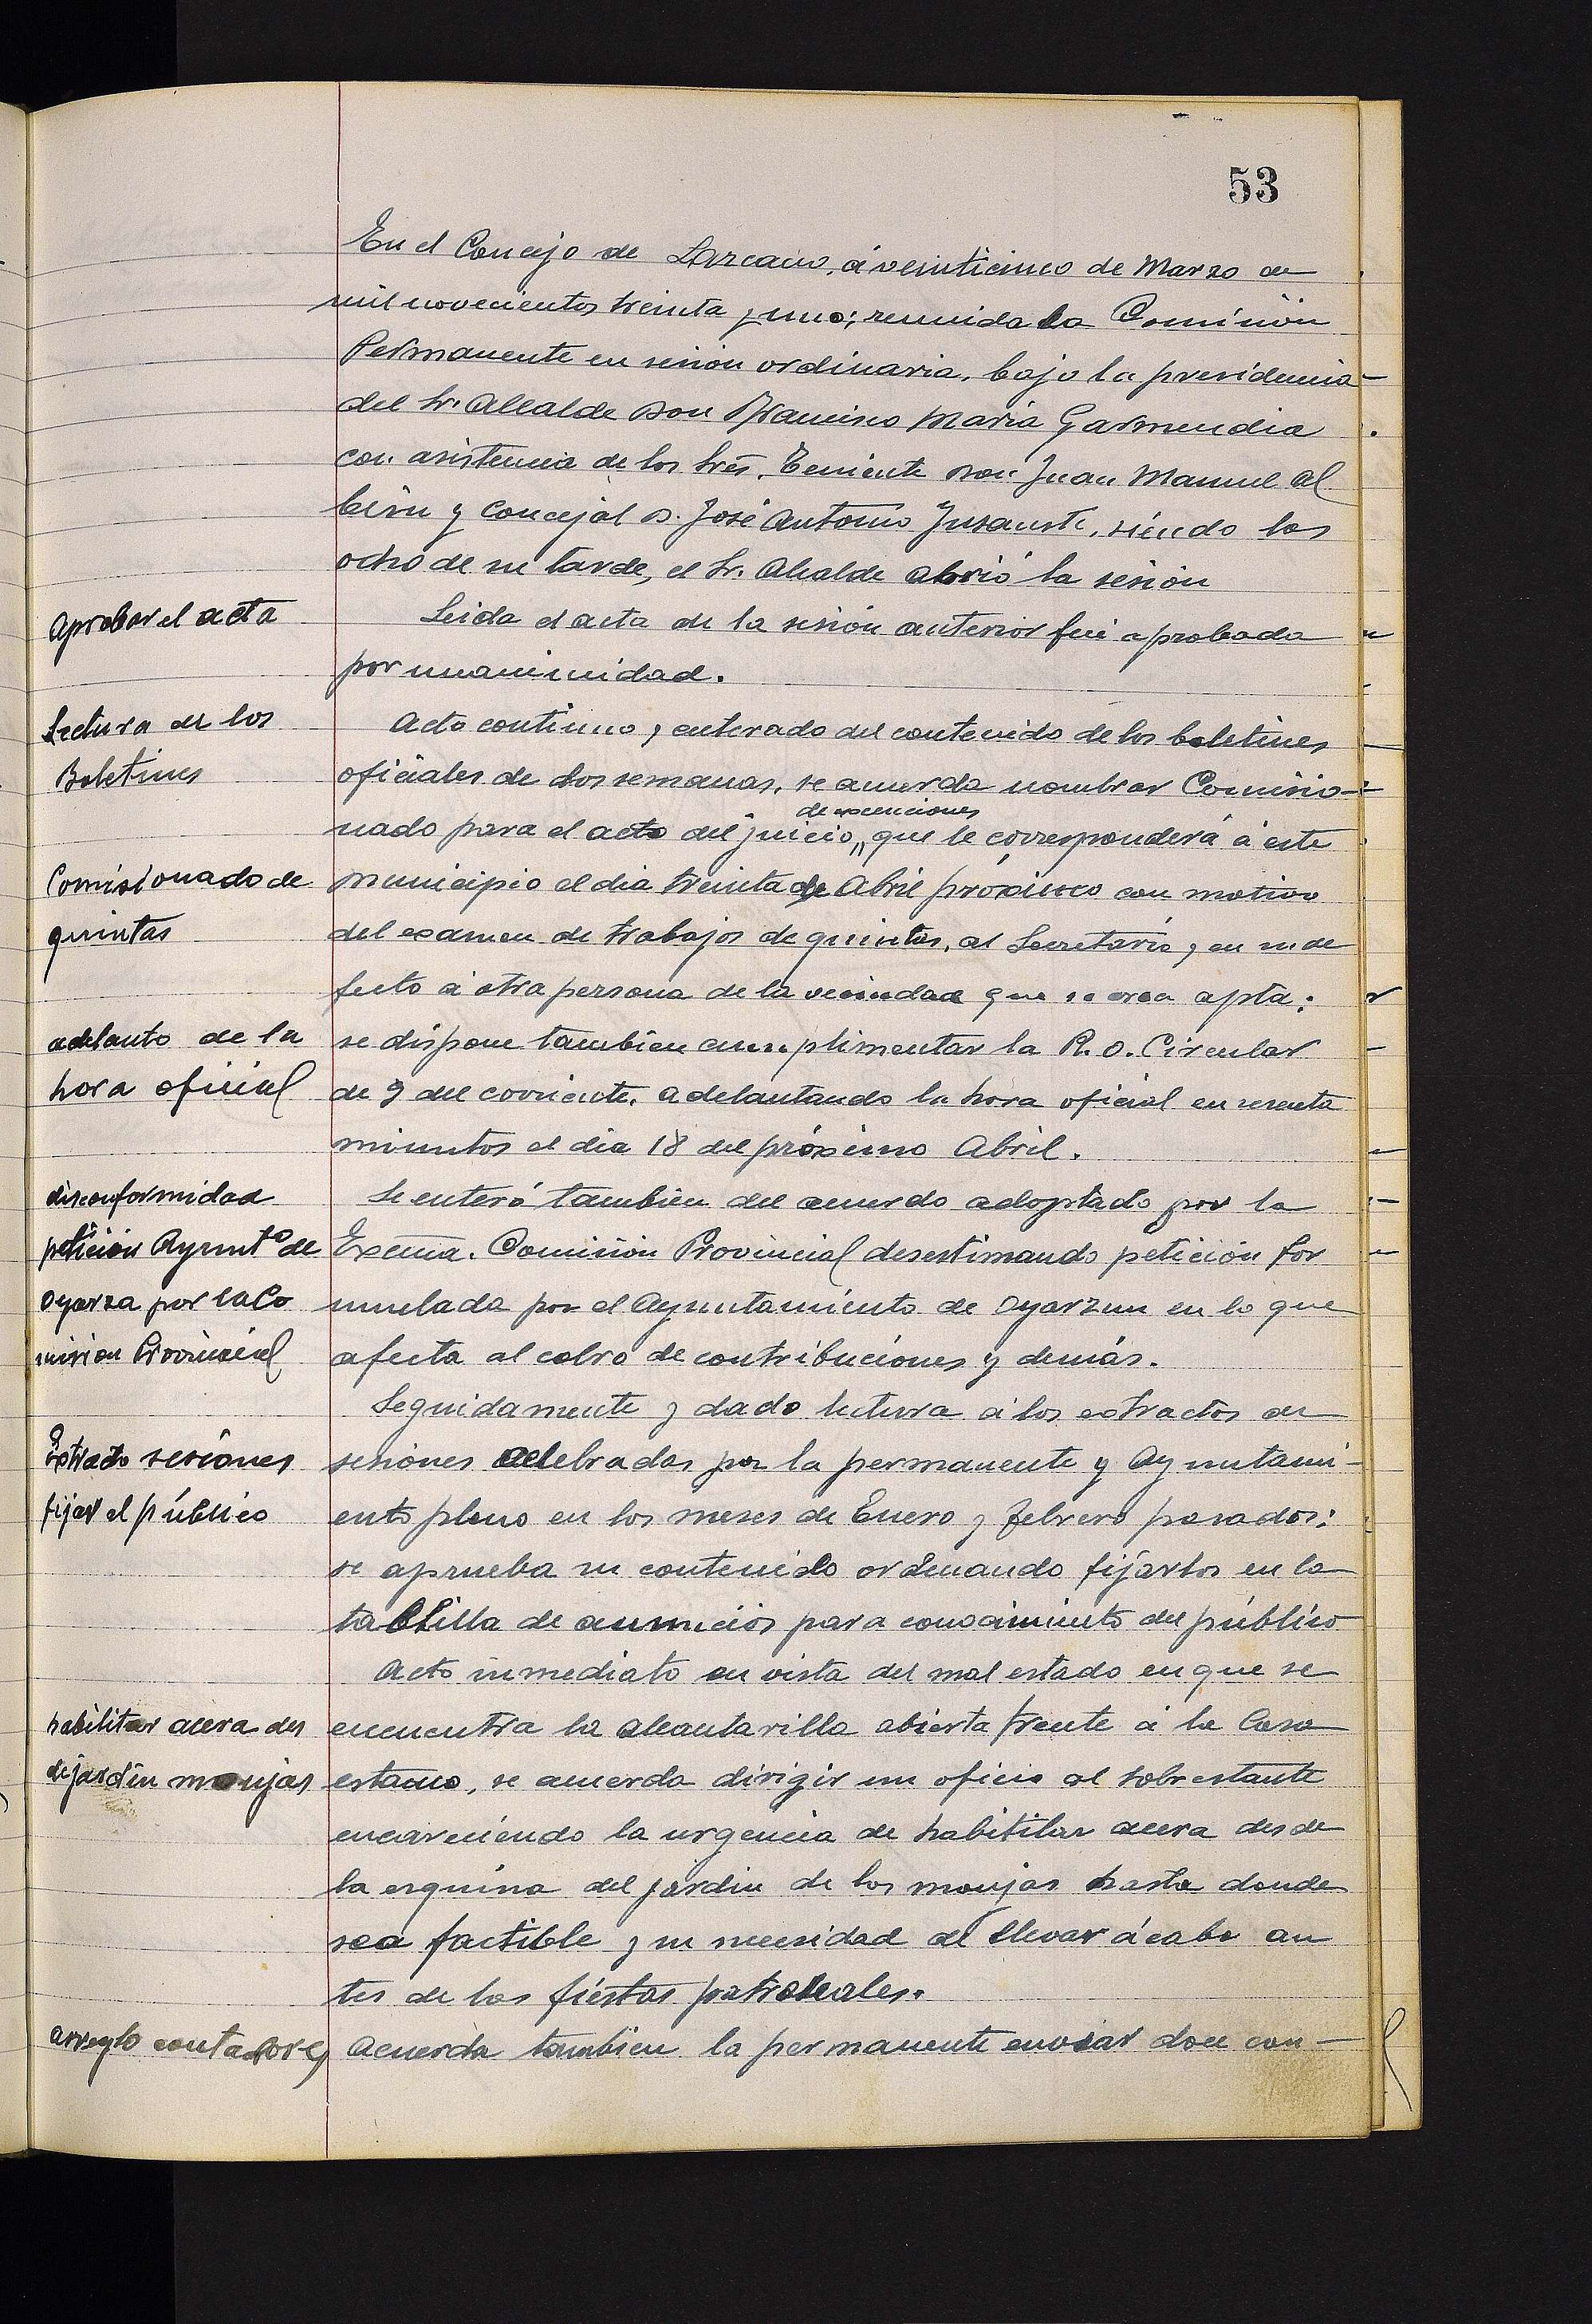 53
En el Concejo de Lazcano, á veinticinco de Marzo de
mil novecientos treinta y uno; reunida la Comisión
Permanente en sesión ordinaria, bajo la presidencia
del Sr. Alcalde Don Francisco María Garmendia
con asistencia de los Sres. Teniente Don Juan Manuel Al
birsu y Concejal D. José Antonio Insausti, siendo las
ocho de su tarde, el Sr. Alcalde abrió la sesión
Aprobar el acta
Leida el acta de la sesión anterior fué aprobada
por unanimidad.
Lectura de los
Boletines
Acto continuo y enterado del contenido de los boletines
oficiales de dos semanas, se acuerda nombrar Comisio-
de excenciones
nado para el acto del juicio „ que le corresponderá á este
Comisionado de
quintas
municipio el dia treinta de Abril próximo con motivo
del examen de trabajos de quintas, al Secretario y en su de
fecto á otra persona de la vecindad que se crea apta;
adelanto de la
hora oficial
se dispone tambien cumplimentar la R.O. Circular
de 9 del corriente, adelantando la hora oficial en sesenta
minutos el dia 18 del próximo Abril.
disconformidad
petición Aymntº de
Oyarza por la Co
misión Provincial
Se enteró tambien del acuerdo adoptado por la
Excma. Comisión Provincial desestimando petición for
mulada por el Ayuntamiento de Oyarzun en lo que
afecta al cobro de contribuciones y demás.
Seguidamente y dado lectura á los extractos de
Extracto sesiones
fijar el público
sesiones celebradas por la permanente y Ayuntami-
ento pleno en los meses de Enero y Febrero pasados;
se aprueba su contenido ordenando fijarlos en la
tablilla de anuncios para conocimiento del público
Acto inmediato en vista del mal estado en que se
habilitar acera des
de jardin monjas
encuentra la alcantarilla abierta frente á la Casa
estanco, se acuerda dirigir un oficio al sobrestante
encareciendo la urgencia de habitilar acera desde
la esquina del jardin de las monjas hasta donde
sea factible y su necesidad de llevar á cabo an
tes de las fiestas patronales.
arreglo contadores
Acuerda tambien la permanente enviar doce con-